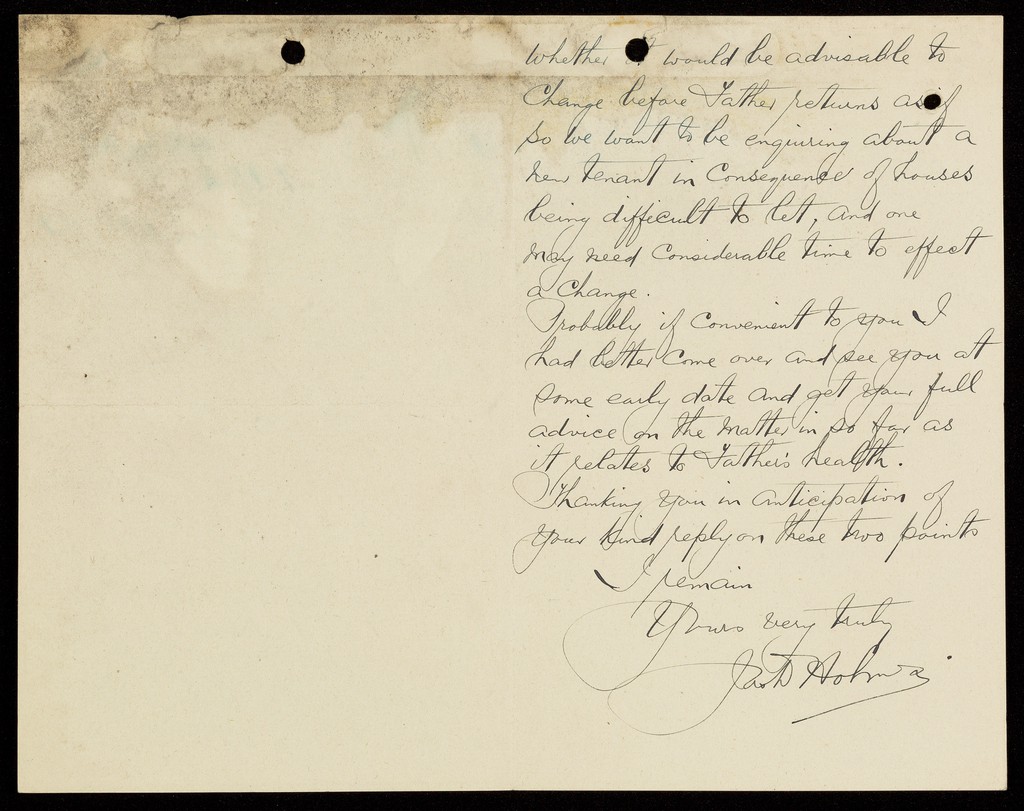 whether it would be advisable to
Change before Father returns as if
so we want to be enquiring about a
new tenant in Consequence of houses
being difficult to let, and one
may need Considerable time to effect
a Change.
Probably if convenient to you I
had better Come over and see you at
some early date and get your full
advice on the matter in so far as
it relates to Father's health.
Thanking you in anticipation of
your kind reply on these two points
I remain
Yours very truly
Holmes